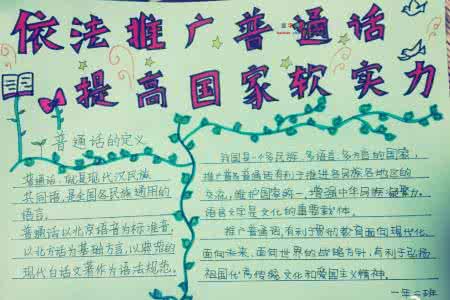 依法推广普通话
提高国家软实力
普通话的定义
普通话，就是现代汉民族
共同语，是全国各民族通用的
语言。
普通话以北京语音为标准音，
以北方话为基础方言，以典范的
现代白话文著作为语法规范。
我国是一个多民族、多语言、多方言的国家，
推广普及普通话有利于增进各民族各地区的
交流，维护国家统一，增强中华民族凝聚力。
语言文字是文化的重要载体。
推广普通话，有利于贯彻教育面向现代化、
面向世界、面向未来的战略方针，有利于弘扬
祖国优秀传统文化和爱国主义精神。
一年二班